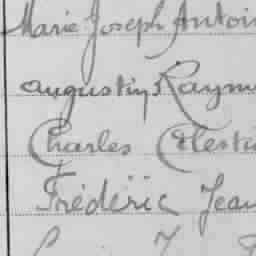 Marie Joseph Antoi
Augustin, Raym
Charles Célesti
Frédéric Jean